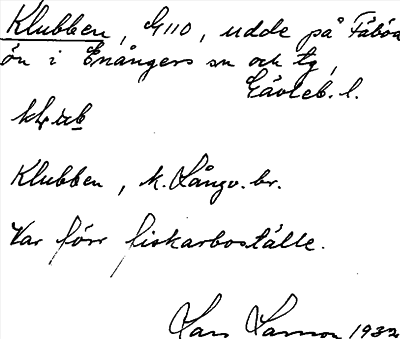 Klubben, G110, udde på Fäbod
ön i Enångers sn och tg,
Gävleb. l.
Klubben, k. Långv. br.
Var förr fiskarboställe.
Lars Larsson 1932